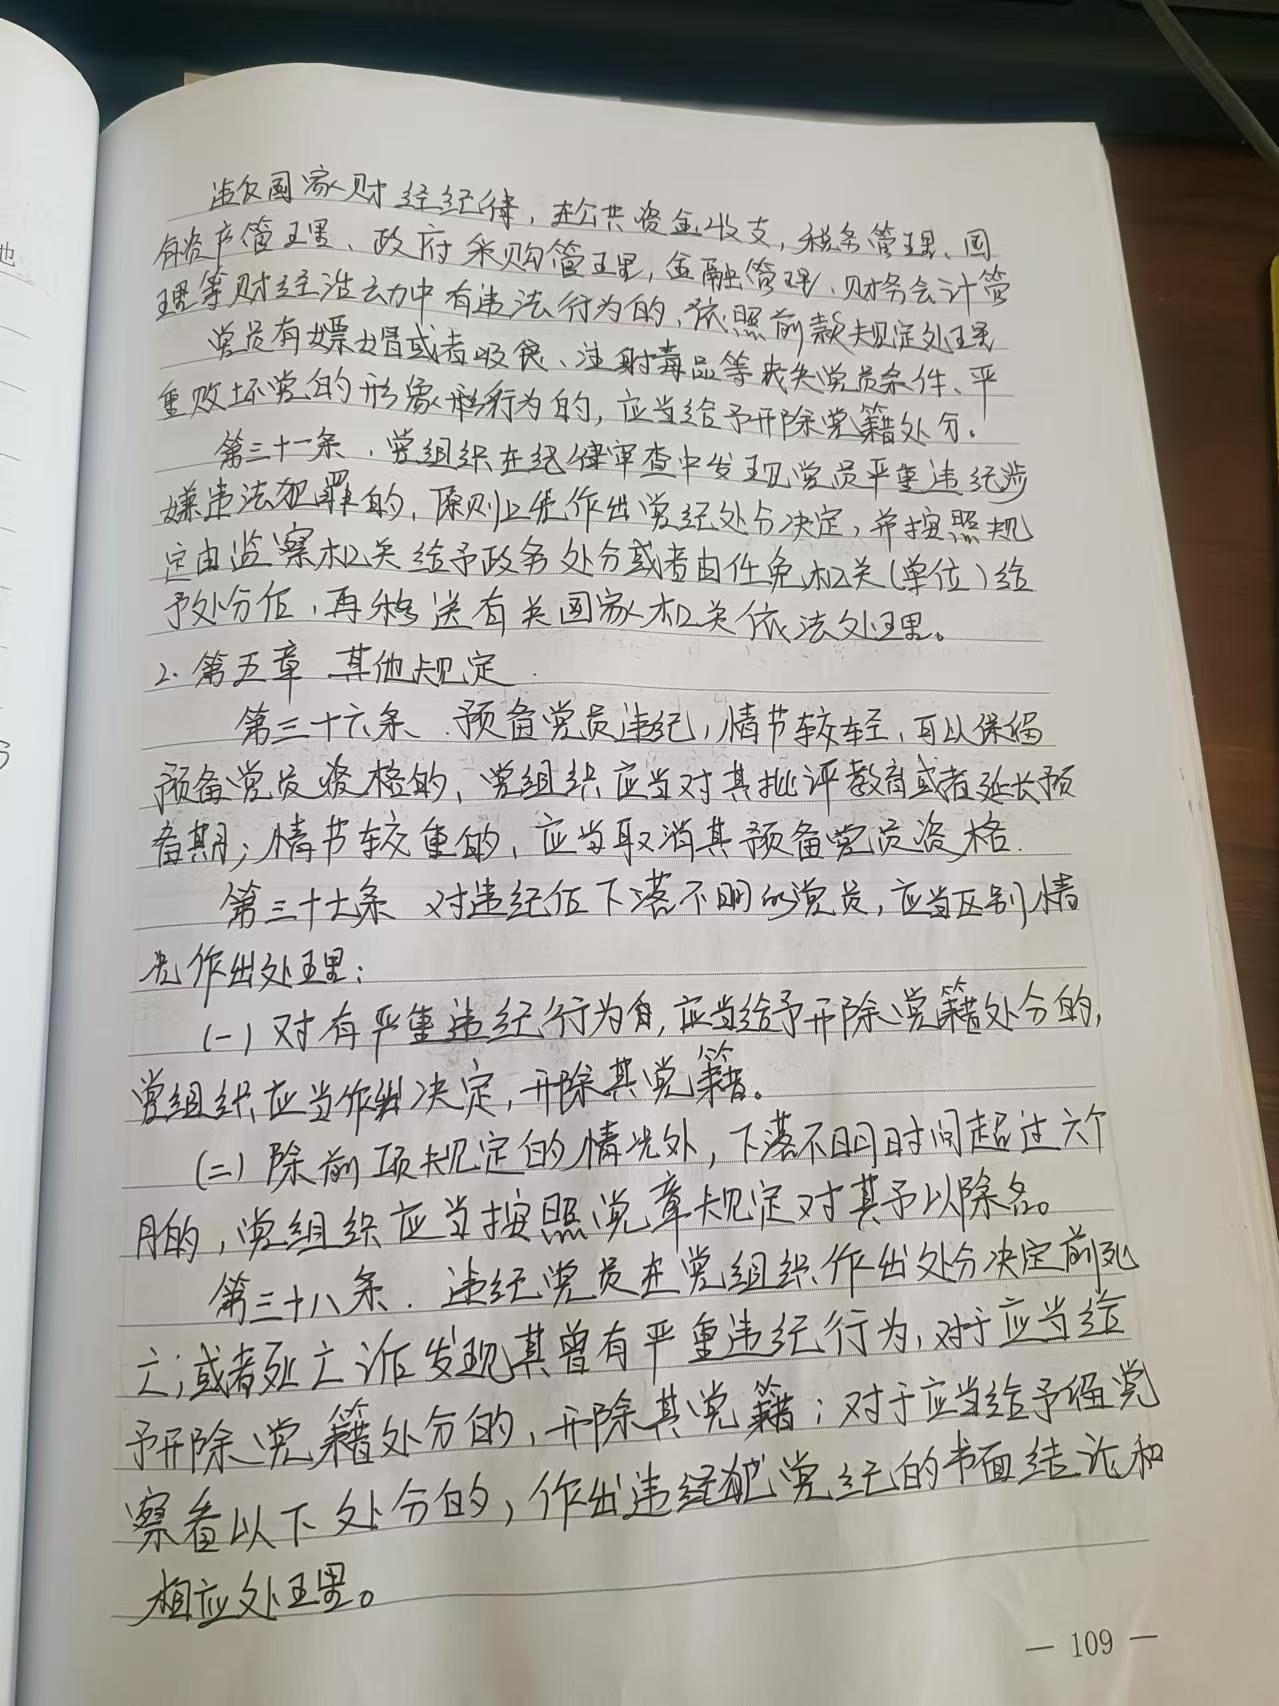 违反国家财经纪律，在公共资金收支，税务管理、国
有资产管理、政府采购管理，金融管理、财务会计管
理等财经活动中有违法行为的，依照前款规定处理
党员有嫖娼或者吸食、注射毒品等丧失党员条件、严
重败坏党的形象行为的，应当给予开除党籍处分。
第三十一条．党组织在纪律审查中发现党员严重违纪涉
嫌违法犯罪的，原则上先作出党纪处分决定，并按照规
定由监察机关给予政务处分或者由任免机关(单位)给
予处分后，再移送有关国家机关依法处理。
2.第五章 其他规定
第三十六条．预备党员违纪，情节较轻，可以保留
预备党员资格的，党组织应当对其批评教育或者延长预
备期；情节较重的，应当取消其预备党员资格.
第三十七条 对违纪后下落不明的党员，应当区别情
况作出处理：
(一)对有严重违纪行为，应当给予开除党籍处分的，
党组织应当作出决定，开除其党籍。
(二)除前项规定的情况外，下落不明时间超过六个
月的，党组织应当按照党章规定对其予以除名。
第三十八条．违纪党员在党组织作出处分决定前死
亡；或者死亡后发现其曾有严重违纪行为，对于应当给
予开除党籍处分的，开除其党籍；对于应当给予留党
察看以下处分的，作出违犯党纪的书面结论和
相应处理。
— 109 —
也